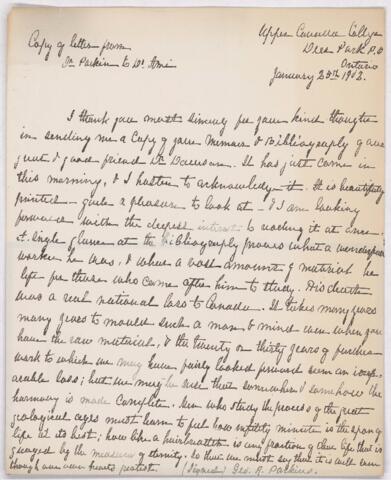 Upper Canada College
Deer Park P.O
Ontario
January 28th 1902.
Copy of letter from
Dr Parkin to Dr Ami
I thank you most sincerely for your kind thought
in sending me a copy of your Memoir & Bibliography of our
great & good friend Dr Dawson. It has just come in
this morning, & I hasten to acknowledge it. It is beautifully
printed – quite a pleasure to look at – & I am looking
forward with the deepest interest to reading it at once.
A single glance at the bibliography proves what a
worker he was, & what a vast amount of material he
left for those who came after him to study. His death
was a real national loss to Canada. It takes many years
many years to mould such a man & mind even when you
have the raw material, & the twenty or thirty years of further
work to which we may have fairly looked forward seem an
loss; but we may be sure that somewhere & somehow the
harmony is made complete. Men who study the process of the great
geological ages must learn to feel how infinitely minute is the span of
life at its best; how like a hairbreadth is any fraction of their life that is
gauged by the measure of eternity. So then we must say that it is well even
though our own hearts protest. (Signed Geo. R. Parkin.